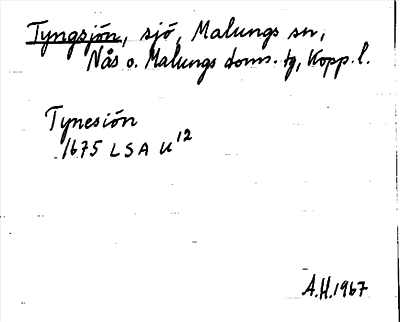 Tyngsjön, sjö, Malungs sn,
Nås o. Malungs doms. tg, Kopp. l.
Tynesiön
1675 LSA U¹²
A.H. 1967